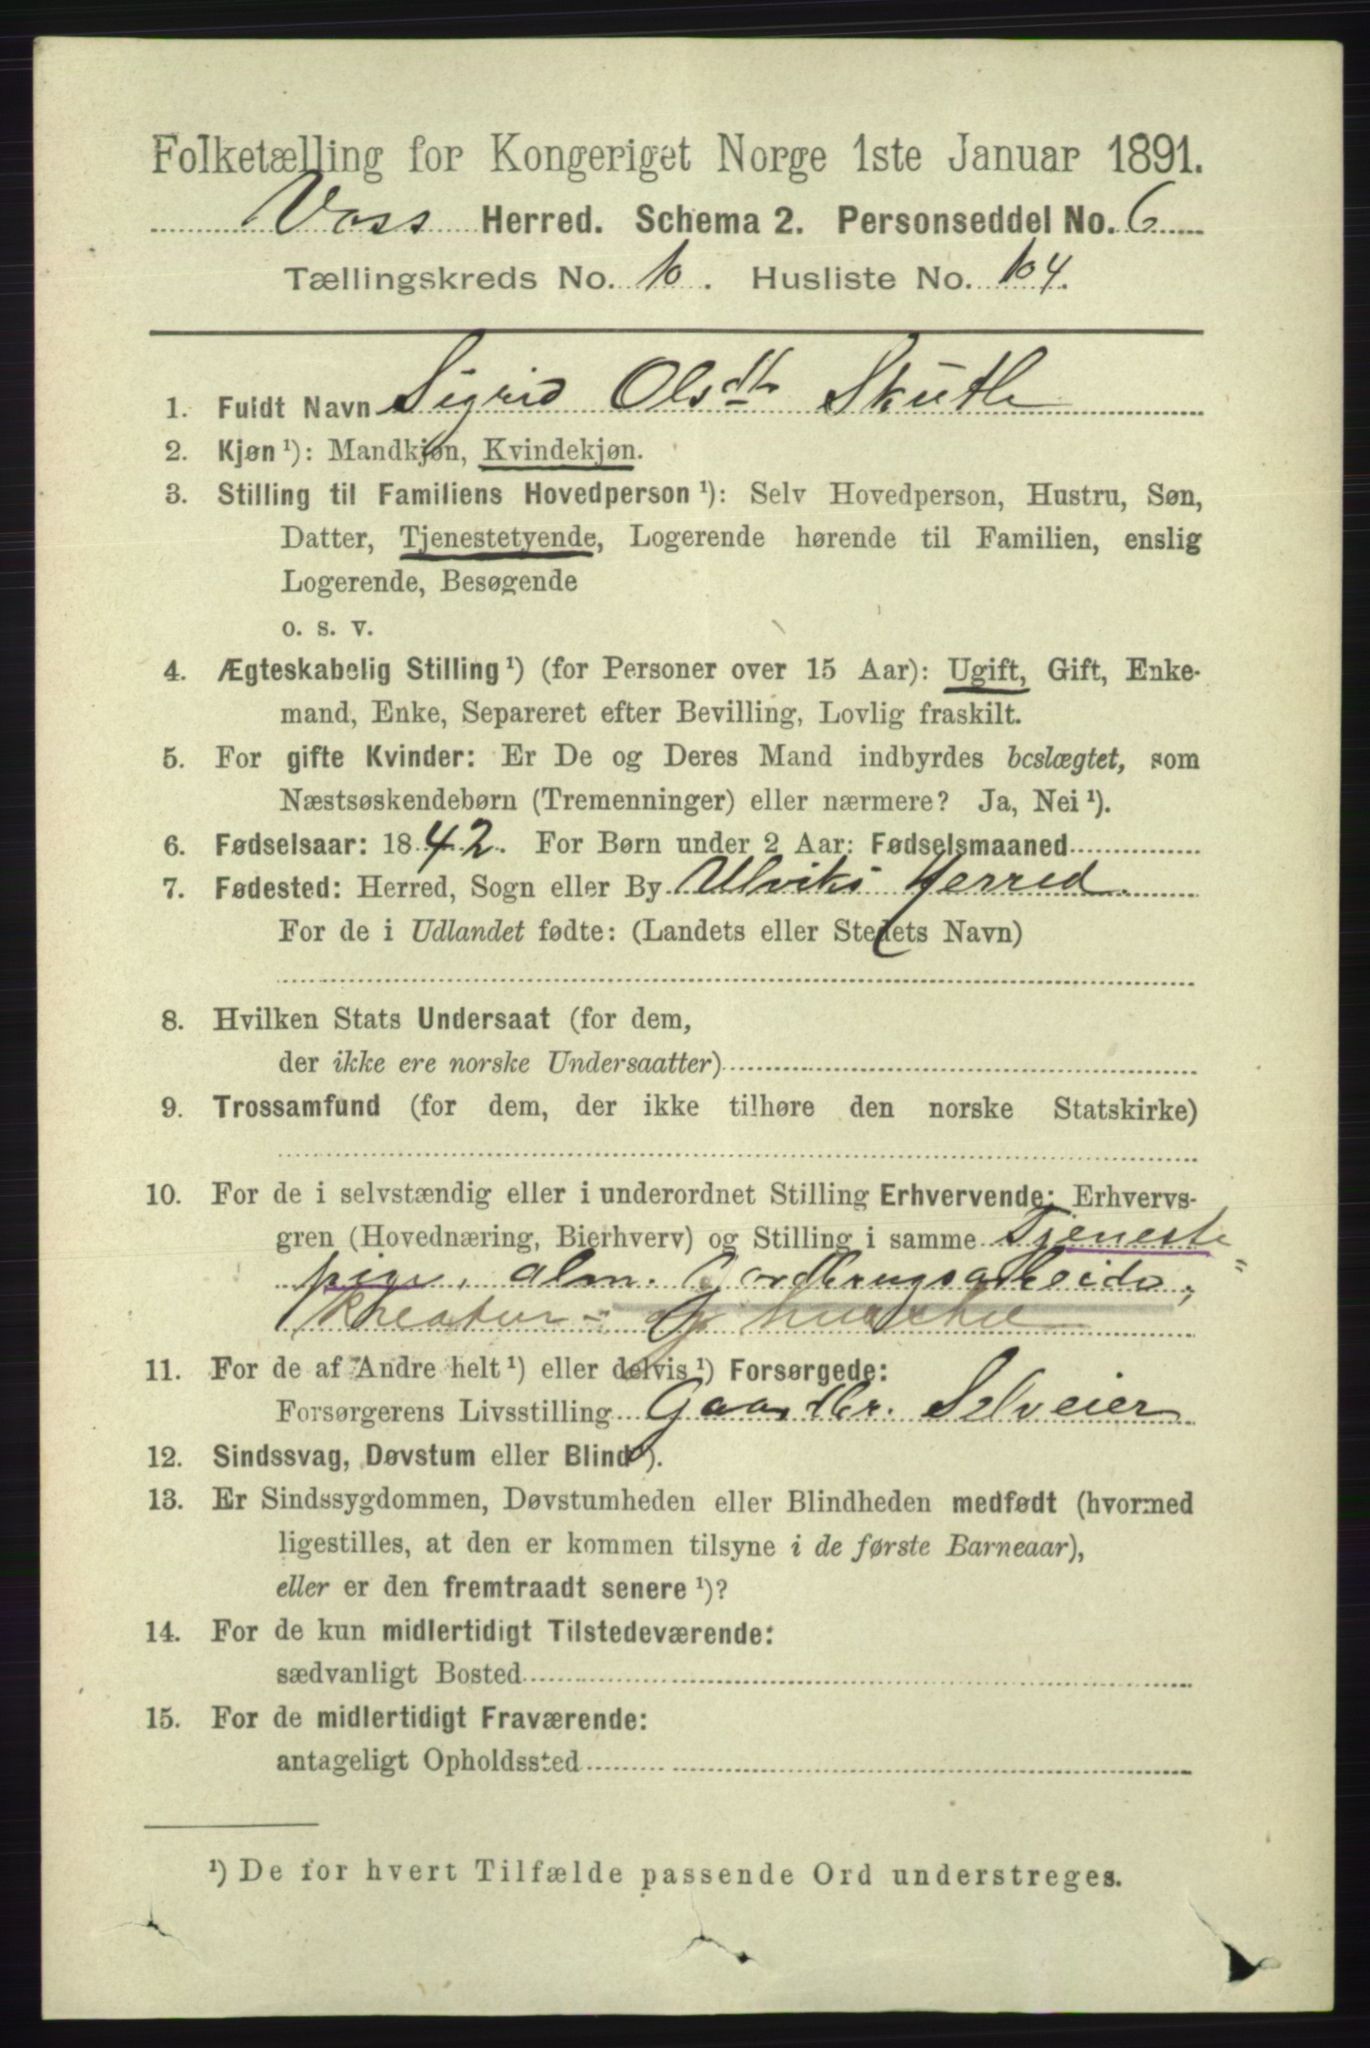 Folketælling for Kongeriget Norge 1ste Januar 1891.
Voss Herred. Schema 2. Personseddel No. 6
Tællingskreds No. 10. Husliste No. 104.
1. Fuldt Navn Sigrid Olsdtr Skutle
2. Kjøn ¹): Mandkjøn, Kvindekjøn.
3. Stilling til Familiens Hovedperson ¹): Selv Hovedperson, Hustru, Søn,
Datter, Tjenestetyende, Logerende hørende til Familien, enslig
Logerende, Besøgende
o. s. v.
4. Ægteskabelig Stilling ¹) (for Personer over 15 Aar): Ugift, Gift, Enke-
mand, Enke, Separeret efter Bevilling, Lovlig fraskilt.
5. For gifte Kvinder: Er De og Deres Mand indbyrdes beslægtet, som
Næstsøskendebørn (Tremenninger) eller nærmere? Ja, Nei ¹).
6. Fødselsaar: 1842. For Børn under 2 Aar: Fødselsmaaned
7. Fødested: Herred, Sogn eller By Ulviks Herred.
For de i Udlandet fødte: (Landets eller Stedets Navn)
8. Hvilken Stats Undersaat (for dem,
der ikke ere norske Undersaatter)
9. Trossamfund (for dem, der ikke tilhøre den norske Statskirke)
10. For de i selvstændig eller i underordnet Stilling Erhvervende: Erhvervs-
gren (Hovednæring, Bierhverv) og Stilling i samme Tjeneste
pige, alm. Gardbrugsarbeide,
kreatur-
11. For de af Andre helt ¹) eller delvis ¹) Forsørgede:
Forsørgerens Livsstilling Gaardbr. Selveier
12. Sindssvag, Døvstum eller Blind ¹).
13. Er Sindssygdommen, Døvstumheden eller Blindheden medfødt (hvormed
ligestilles, at den er kommen tilsyne i de første Barneaar),
eller er den fremtraadt senere ¹)?
14. For de kun midlertidigt Tilstedeværende:
sædvanligt Bosted
15. For de midlertidigt Fraværende:
antageligt Opholdssted
¹) De for hvert Tilfælde passende Ord understreges.